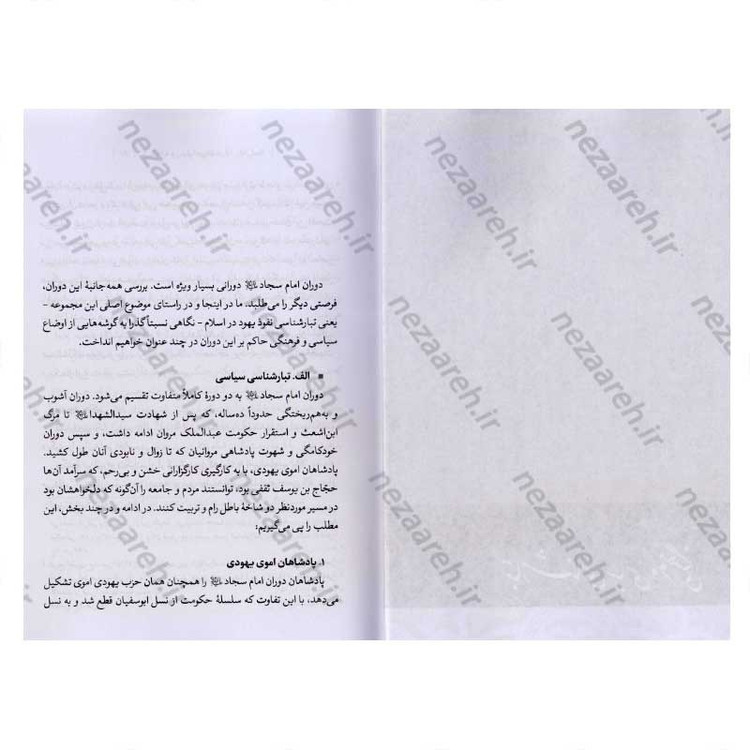 دوران امام سجاد دورانی بسیار ویژه است. بررسی همه‌جانبهٔ این دوران،
فرصتی دیگر را می‌طلبد. ما در اینجا و در راستای موضوع اصلی این مجموعه -
یعنی تبارشناسی نفوذ یهود در اسلام - نگاهی نسبتاً گذرا به گوشه‌هایی از اوضاع
سیاسی و فرهنگی حاکم بر این دوران در چند عنوان خواهیم انداخت.
▪ الف. تبارشناسی سیاسی
دوران امام سجاد به دو دورهٔ کاملاً متفاوت تقسیم می‌شود. دوران آشوب
و به‌هم‌ریختگی حدوداً ده‌ساله، که پس از شهادت سیدالشهدا تا مرگ
ابن‌اشعث و استقرار حکومت عبدالملک مروان ادامه داشت، و سپس دوران
خودکامگی و شهوت پادشاهی مروانیان که تا زوال و نابودی آنان طول کشید.
پادشاهان اموی یهودی، با به کارگیری کارگزارانی خشن و بی‌رحم، که سرآمد آن‌ها
حجّاج بن یوسف ثقفی بود، توانستند مردم و جامعه را آن‌گونه که دلخواهشان بود
در مسیر موردنظر دو شاخهٔ باطل رام و تربیت کنند. در ادامه و در چند بخش، این
مطلب را پی می‌گیریم:
۱. پادشاهان اموی یهودی
پادشاهان دوران امام سجاد را همچنان همان حزب یهودی اموی تشکیل
می‌دهد، با این تفاوت که سلسلهٔ حکومت از نسل ابوسفیان قطع شد و به نسل
nezaareh.ir
nezaareh.ir
nezaareh.ir
nezaareh.ir
nezaareh.ir
nezaareh.ir
nezaareh.ir